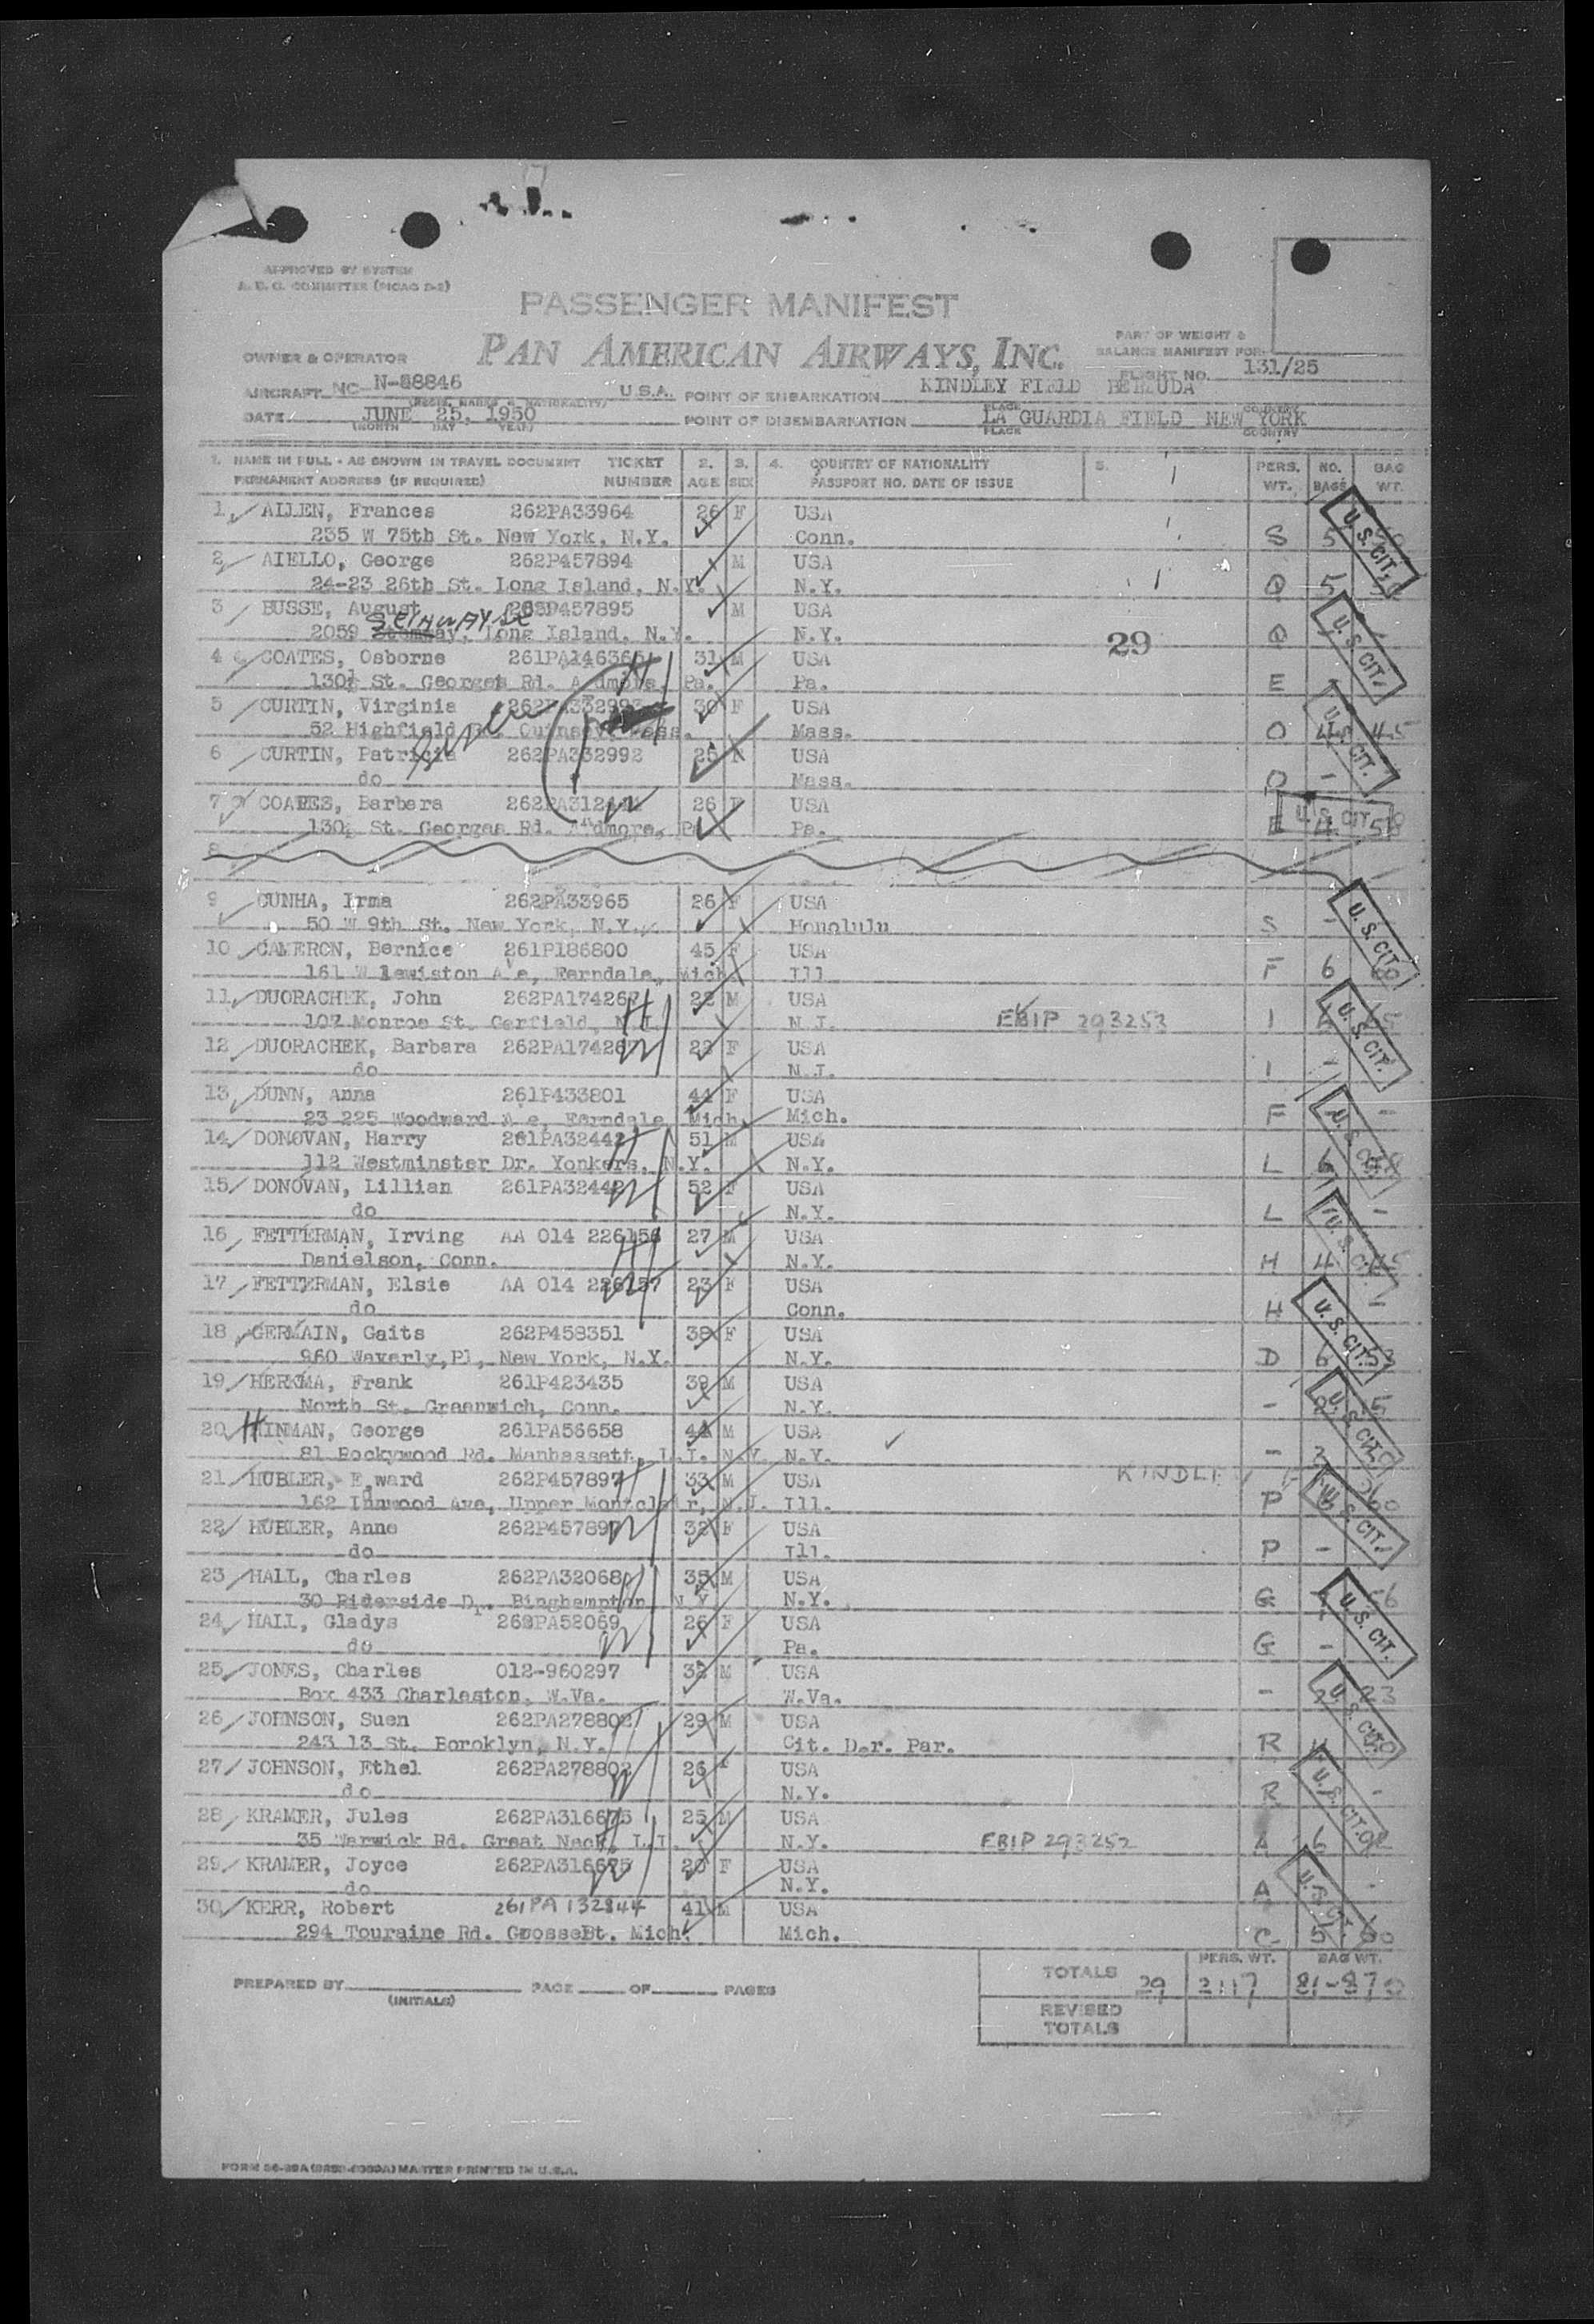 APPROVED BY SYSTEM
A. E. C. COMMITTEE (PICAO D-2)
PASSENGER MANIFEST
PAN AMERICAN AIRWAYS, INC.
PART OF WEIGHT &
BALANCE MANIFEST FOR
OWNER & OPERATOR
FLIGHT NO. 131/25
AIRCRAFT NC N-88846 U.S.A. POINT OF EMBARKATION KINDLEY FIELD BERMUDA
(REGIS. MARKS & NATIONALITY) PLACE COUNTRY
DATE JUNE 25, 1950 POINT OF DISEMBARKATION LA GUARDIA FIELD NEW YORK
(MONTH DAY YEAR) PLACE COUNTRY
1. NAME IN FULL - AS SHOWN IN TRAVEL DOCUMENT TICKET 2. 3. 4. COUNTRY OF NATIONALITY 5. PERS. NO. BAG
PERMANENT ADDRESS (IF REQUIRED) NUMBER AGE SEX PASSPORT NO. DATE OF ISSUE WT. BAGS WT.
1 ALLEN, Frances 262PA33964 26 F USA
235 W 75th St. New York, N.Y. Conn. S 5 U. S. CIT.
2 AIELLO, George 262P457894 M USA
24-23 26th St. Long Island, N.Y. N.Y. Q 5
3 BUSSE, August 262P457895 M USA
2059 Long Island, N.Y. N.Y. 29 Q - U. S. CIT.
4 COATES, Osborne 261PA146365 31 M USA
130½ St. Georges Rd. Ardmore, Pa. Pa. E -
5 CURTIN, Virginia 262PA332993 30 F USA
52 Highfield Mass. O 45 U. S. CIT.
6 CURTIN, Patricia 262PA332992 25 F USA
do Mass. O -
7 COATES, Barbara 26 F USA
130½ St. Georges Rd. Ardmore, Pa Pa. E 4 58 U. S. CIT.
8
9 CUNHA, Irma 262PA33965 26 F USA
50 W 9th St. New York, N.Y. Honolulu S - U. S. CIT.
10 CAMERON, Bernice 261P186800 45 F USA
161 W lewiston Ave, Ferndale, Mich Ill F 6
11 DUORACHEK, John 262PA174267 22 M USA
107 Monroe St. Garfield, N.J. N.J. EBIP 293253 I U. S. CIT.
12 DUORACHEK, Barbara 262PA174267 22 F USA
do N.J. I -
13 DUNN, Anna 261P433801 44 F USA
23 225 Woodward Ave, Ferndale, Mich. Mich. F - U. S. CIT.
14 DONOVAN, Harry 261PA32442 51 M USA
112 Westminster Dr. Yonkers, N.Y. N.Y. L 6
15 DONOVAN, Lillian 261PA32442 52 F USA
do N.Y. L - U. S. CIT.
16 FETTERMAN, Irving AA 014 226156 27 M USA
Danielson, Conn. N.Y. H 4 45
17 FETTERMAN, Elsie AA 014 226157 23 F USA
do Conn. H - U. S. CIT.
18 GERMAIN, Gaits 262P458351 38 F USA
960 Waverly,Pl, New York, N.Y. N.Y. D 6 53
19 HERKMA, Frank 261P423435 39 M USA
North St. Greenwich, Conn. N.Y. - U. S. CIT.
20 HINMAN, George 261PA56658 44 M USA
81 Rockywood Rd. Manhassett, L.I. N.Y. N.Y. -
21 HUBLER, Edward 262P457897 33 M USA KINDLEY
162 Inwood Ave, Upper Montclair, N.J. Ill. P 60 U. S. CIT.
22 HUBLER, Anne 262P457897 32 F USA
do Ill. P -
23 HALL, Charles 262PA32068 35 M USA
30 Riderside Dr. Binghampton N.Y. N.Y. G 56 U. S. CIT.
24 HALL, Gladys 262PA52069 26 F USA
do Pa. G -
25 JONES, Charles 012-960297 32 M USA
Box 433 Charleston, W.Va. W.Va. - 2 23 U. S. CIT.
26 JOHNSON, Suen 262PA278802 29 M USA
243 13 St. Boroklyn, N.Y. Cit. Der. Par. R 4
27 JOHNSON, Ethel 262PA278802 26 F USA
do N.Y. R - U. S. CIT.
28 KRAMER, Jules 262PA316675 25 M USA
35 Warwick Rd. Great Neck, L.I. N.Y. EBIP 293252 A 6
29 KRAMER, Joyce 262PA316675 20 F USA
do N.Y. A - U. S. CIT.
30 KERR, Robert 261PA132844 41 M USA
294 Touraine Rd. GrossePt. Mich. Mich. C 5 60
PREPARED BY PAGE OF PAGES
(INITIALS)
TOTALS 29 PERS. WT. 2117 BAG WT. 81-870
REVISED
TOTALS
MASTER PRINTED IN U.S.A.